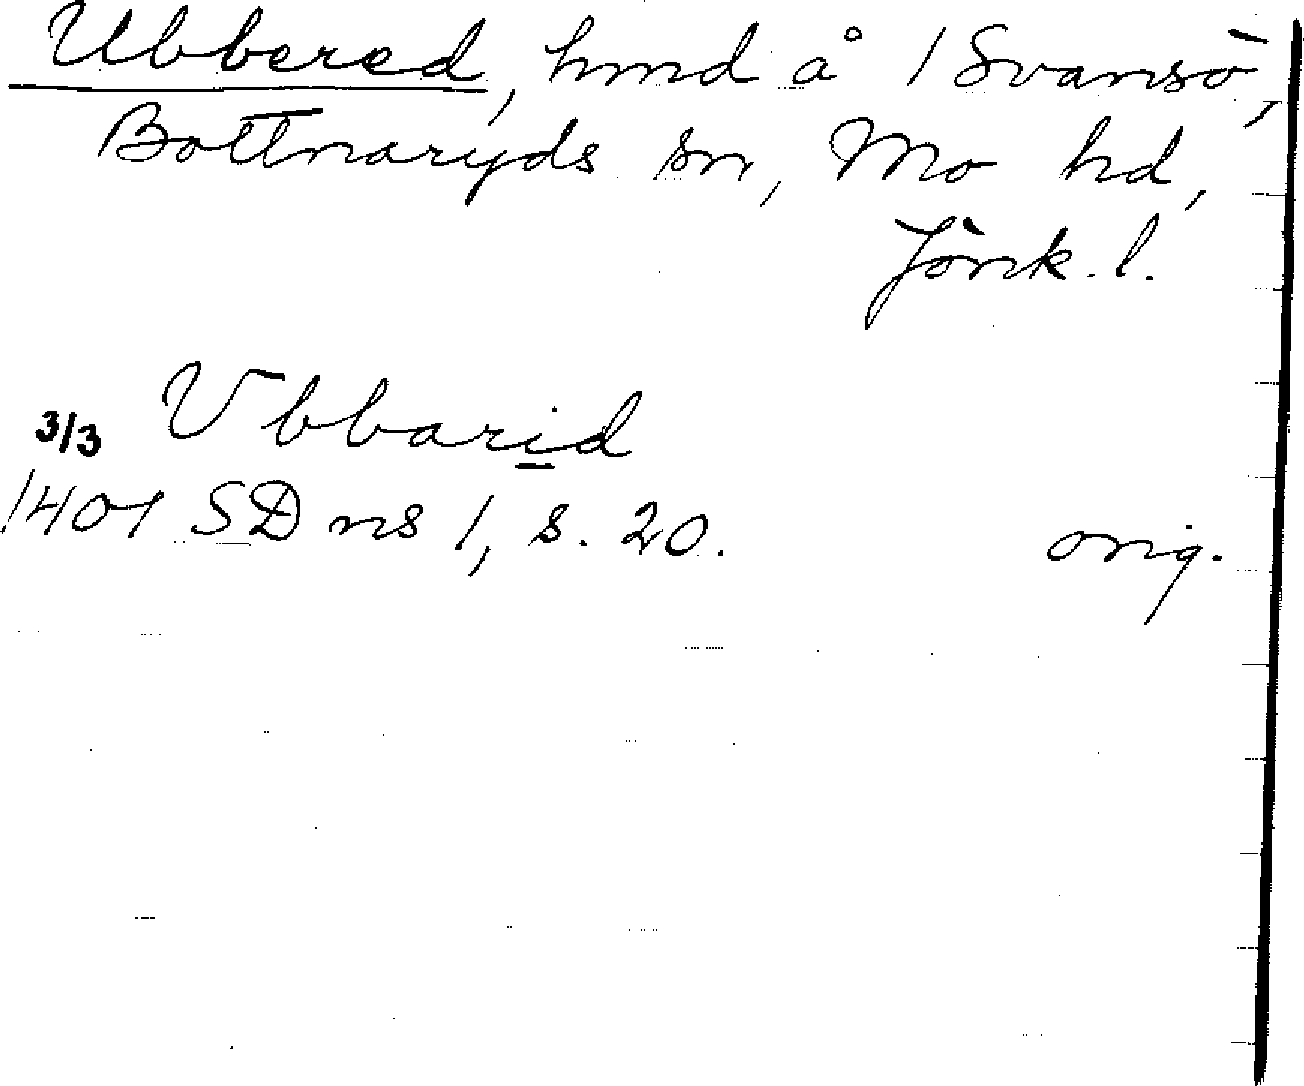 Ubbered, hmd å 1 Svansö,
Bottnaryds sn, Mo hd,
Jönk. l.
3/3 Vbbarid
1401 SD ns 1, s. 20. orig.